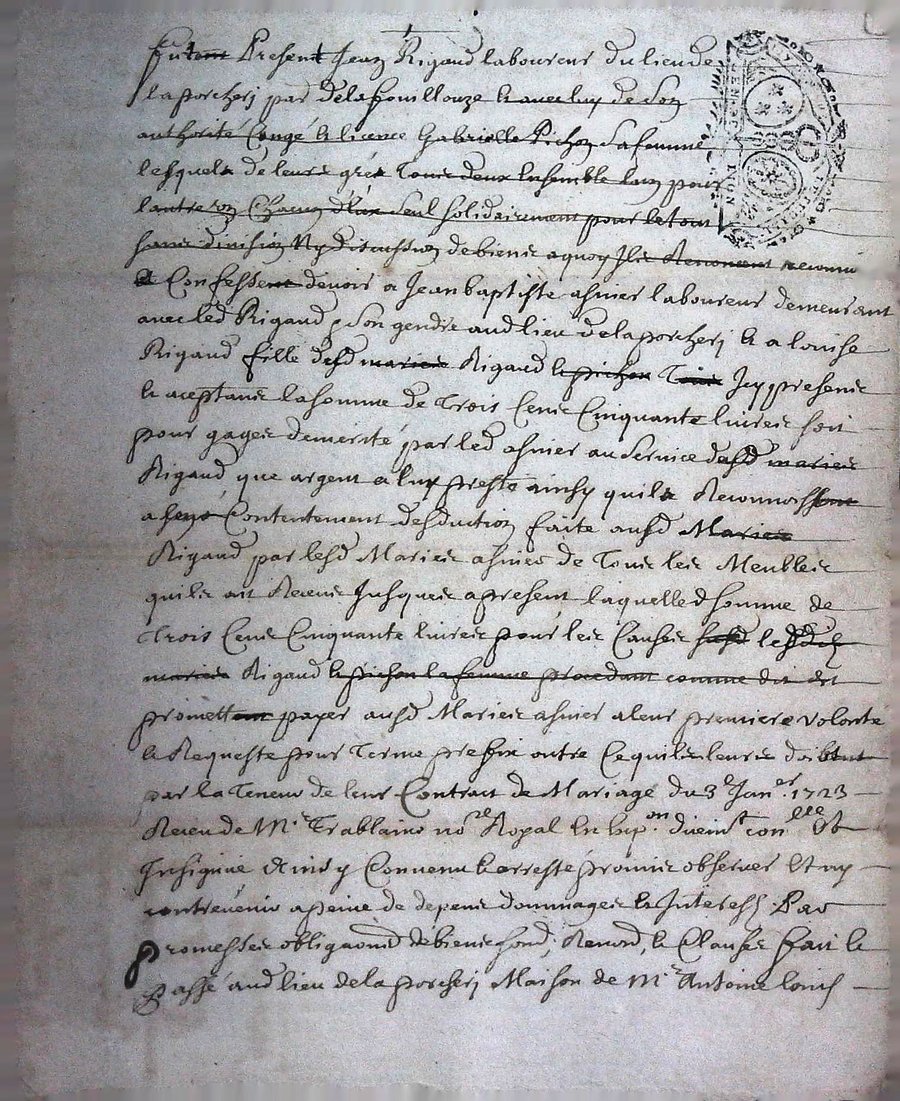 fut Present Jean Rigaud laboureur du lieu de
la porcherj par de la fouillouze & avec luy de son
authorité Congé & licence Gabrielle Pichon sa femme
lesquels de leurs grés Tous deux Ensemble lun pour
lautre & Chacun d'Eux seul solidairement pour le tout
sans division Ny discussion de biens a quoy Ils Renoncent
Confessent devoir a Jean baptiste asnier laboureur demeurant
avec led Rigaud son gendre aud lieu de la porcherj & a louise
Rigaud fille desd mariés Rigaud & pichon Tous Icy presents
& aceptants la somme de Trois Cens Cinquante livres soit
pour gages demerité par led asnier au service desd mariés
Rigaud que argent a luy presté ainsy quils Reconnoissent
a Contentement desduction faite ausd Mariés
Rigaud par lesd Mariés asnier de Tous les Meubles
quils ont Receus Jusques a present laquelle d somme de
Trois Cens Cinquante livres pour les Causes susd
mariés Rigaud & pichon sa femme procedant comme dit est
promettent payer ausd Mariés asnier a leur premiere volonté
& Requeste pour Terme prefix outre Ce quils leurs doibvent
par la Teneur de leur Contrat de Mariage du 3e Janer 1723
Receu de Me Trablaine nore Royal En Con
Insinué Ainsy Convenu & arresté promis observer Et ny
contrevenir a peine de depens dommages & Interests Par
promesses obligaons de biens Renon & Clauses fait &
Passé aud lieu de la porcherj Maison de Me Antoine louis